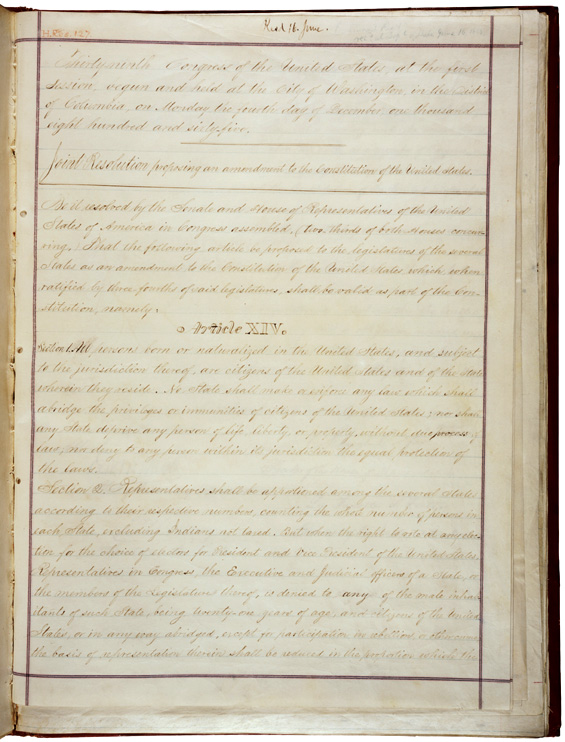 Recd 16. June.
Thirty-ninth Congress of the United States, at the first
Session, begun and held at the City of Washington, in the District
of Columbia, on Monday the fourth day of December one thousand
eight hundred and sixty-five.
Joint Resolution proposing an amendment to the Constitution of the United States.
Be it resolved by the Senate and House of Representatives of the United
States of America in Congress assembled, (two thirds of both Houses concur-
ring,) That the following article be proposed to the legislatures of the several
States as an amendment to the Constitution of the United States which, when
ratified by three fourths of said legislatures, shall be valid as part of the Con-
stitution, namely:
Article XIV.
Section 1. All persons born or naturalized in the United States, and subject
to the jurisdiction thereof, are citizens of the United States and of the State
wherein they reside. No State shall make or enforce any law which shall
abridge the privileges or immunities of citizens of the United States; nor shall
any State deprive any person of life, liberty, or property, without due process of
law; nor deny to any person within its jurisdiction the equal protection of
the laws.
Section 2. Representatives shall be apportioned among the several States
according to their respective numbers, counting the whole number of persons in
each State, excluding Indians not taxed. But when the right to vote at any elec-
tion for the choice of electors for President and Vice President of the United States,
Representatives in Congress, the Executive and Judicial officers of a State, or
the members of the Legislature thereof, is denied to any of the male inhab-
itants of such State, being twenty-one years of age, and citizens of the United
States, or in any way abridged, except for participation in rebellion, or other crime,
the basis of representation therein shall be reduced in the proportion which the